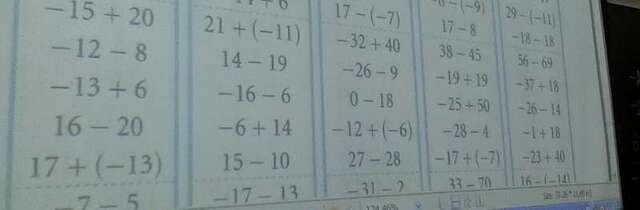 −15 + 20
−12 − 8
−13 + 6
16 − 20
17 + (−13)
−7 − 5
21 + (−11)
14 − 19
−16 − 6
−6 + 14
15 − 10
−17 − 13
17 − (−7)
−32 + 40
−26 − 9
0 − 18
−12 + (−6)
27 − 28
−31 −
17 − 8
38 − 45
−19 + 19
−25 + 50
−28 − 4
−17 + (−7)
33 − 70
29 − (−11)
−18 − 18
56 − 69
−37 + 18
−26 − 14
−1 + 18
−23 + 40
16 − (−14)